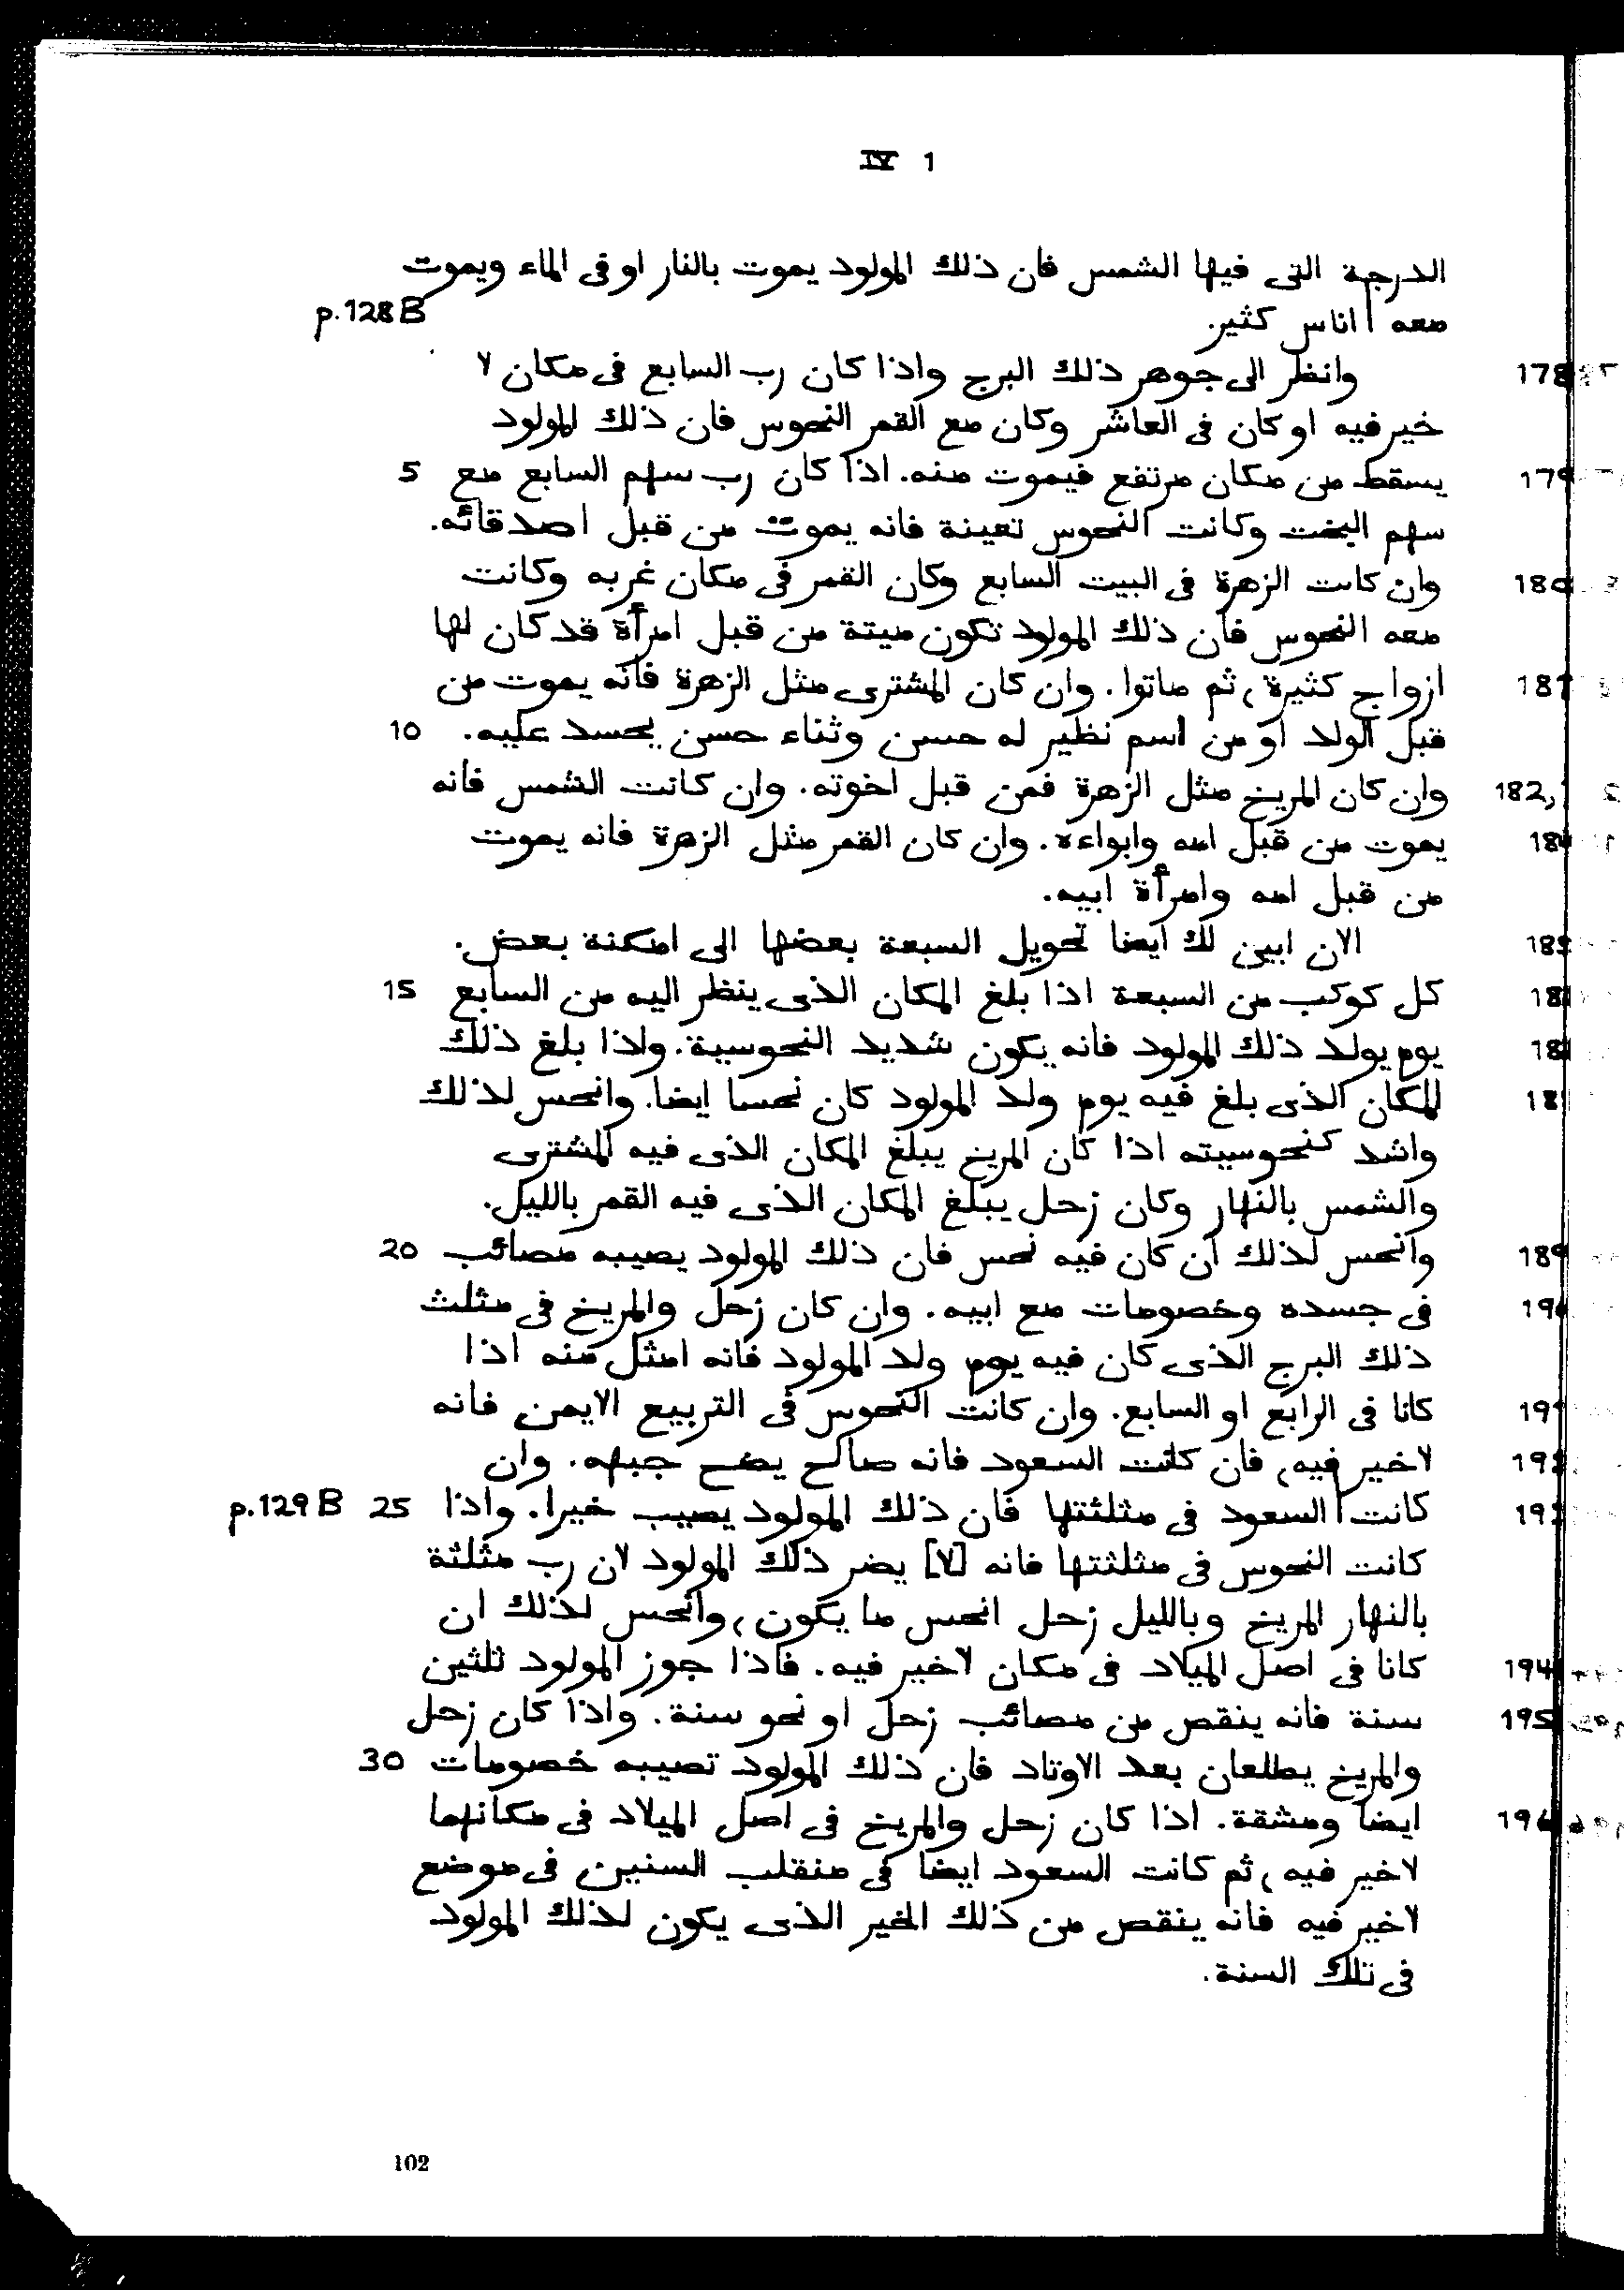 IV 1
الدرجة التى فيها الشمس فان ذلك المولود يموت بالنار او فى الماء ويموت
معه | اناس كثير. p.128B
178 وانظر الى جوهر ذلك البرج واذا كان رب السابع فى مكان لا
خير فيه او كان فى العاشر وكان مع القمر النحوس فان ذلك المولود
179 يسقط من مكان مرتفع فيموت منه. اذا كان رب سهم السابع مع 5
سهم البخت وكانت النحوس تعينة فانه يموت من قبل اصدقائه.
180 وان كانت الزهرة فى البيت السابع وكان القمر فى مكان غربه وكانت
معه النحوس فان ذلك المولود تكون ميتة من قبل امرأة قد كان لها
181 ازواج كثيرة، ثم ماتوا. وان كان المشترى مثل الزهرة فانه يموت من
قبل الولد او من اسم نظير له حسن وثناء حسن يحسد عليه. 10
182, وان كان المريخ مثل الزهرة فمن قبل اخوته. وان كانت الشمس فانه
يموت من قبل امه وابواءه. وان كان القمر مثل الزهرة فانه يموت
من قبل امه وامرأة ابيه.
الان ابين لك ايضا تحويل السبعة بعضها الى امكنة بعض.
كل كوكب من السبعة اذا بلغ المكان الذى ينظر اليه من السابع 15
يوم يولد ذلك المولود فانه يكون شديد النحوسية. واذا بلغ ذلك
المكان الذى بلغ فيه يوم ولد المولود كان نحسا ايضا. وانحس لذلك
واشد كنحوسيته اذا كان المريخ يبلغ المكان الذى فيه المشترى
والشمس بالنهار وكان زحل يبلغ المكان الذى فيه القمر بالليل.
189 وانحس لذلك ان كان فيه نحس فان ذلك المولود يصيبه مصائب 20
فى جسده وخصومات مع ابيه. وان كان زحل والمريخ فى مثلث
ذلك البرج الذى كان فيه يوم ولد المولود فانه امثل منه اذا
191 كانا فى الرابع او السابع. وان كانت النحوس فى التربيع الايمن فانه
لاخير فيه، فان كانت السعود فانه صالح يضح جبهه. وان
كانت | السعود فى مثلثتها فان ذلك المولود يصيب خيرا. واذا 25 p.129B
كانت النحوس فى مثلثتها فانه [لا] يضر ذلك المولود لان رب مثلثة
بالنهار المريخ وبالليل زحل انحس ما يكون، وانحس لذلك ان
194 كانا فى اصل الميلاد فى مكان لاخير فيه. فاذا جوز المولود ثلثين
195 سنة فانه ينقص من مصائب زحل او نحو سنة. واذا كان زحل
والمريخ يطلعان بعد الاوتاد فان ذلك المولود تصيبه خصومات 30
ايضا ومشقة. اذا كان زحل والمريخ فى اصل الميلاد فى مكانهما
لاخير فيه، ثم كانت السعود ايضا فى منقلب السنين فى موضع
لاخير فيه فانه ينقص من ذلك الخير الذى يكون لذلك المولود
فى تلك السنة.
102